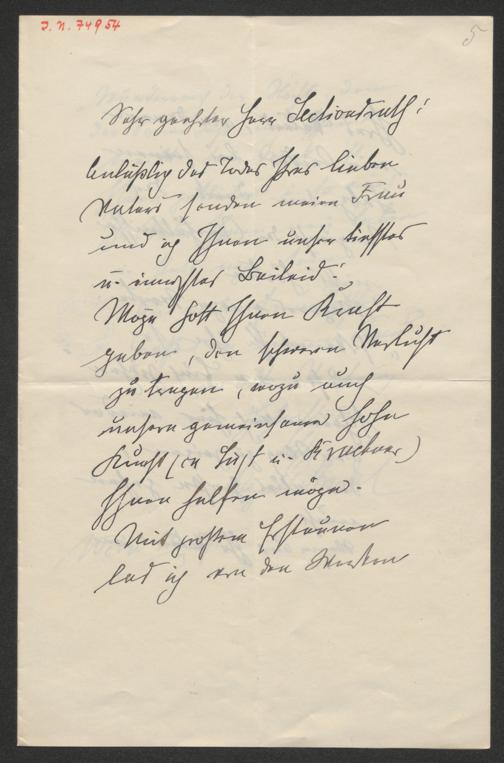 I. N. 74954
5
Sehr geehrter Herr Sectionsrath!
Anläßlig des Todes Ihres lieben
Vaters senden meine Frau
und ich Ihnen unser tiefstes
u. innigstes Beileid!
Möge Gott Ihnen Kraft
geben, den schweren Verlust
zu tragen, wozu auch
unsere gemeinsame hohe
Kunst (in Lust u. )
Ihnen helfen möge.
Mit großem Erstaunen
las ich von den Werken